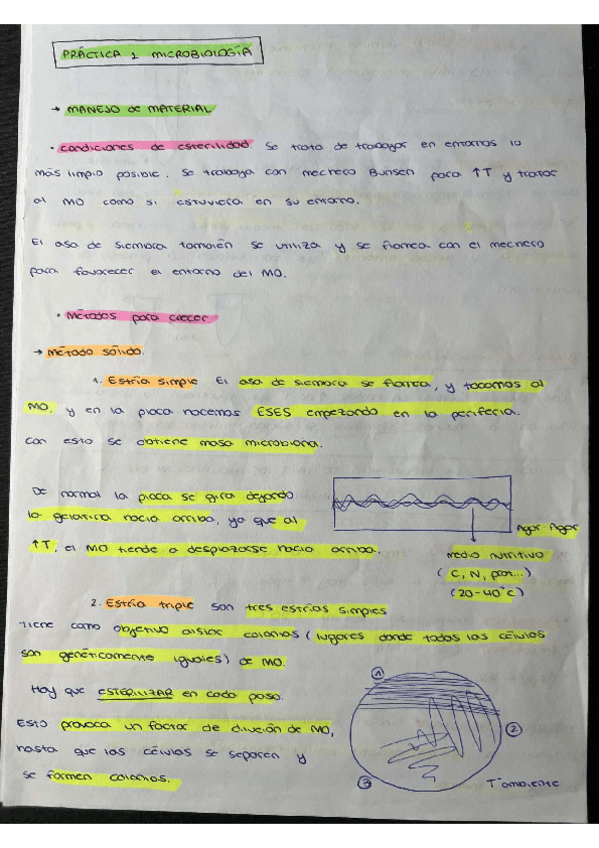 PRÁCTICA 1 MICROBIOLOGÍA
→ MANEJO de MATERIAL
• condiciones de esterilidad Se trata de trabajar en entornos lo
más limpio posible. Se trabaja con mechero Bunsen para ↑T y tratar
al MO como si estuviera en su entorno.
El asa de siembra también se utiliza y se flamea con el mechero
para favorecer el entorno del MO.
• Métodos para crecer
→ método sólido.
1. Estría simple El asa de siembra se flamea, y tocamos al
MO, y en la placa hacemos ESES empezando en la periferia.
Con esto se obtiene masa microbiana.
De normal la placa se gira dejando
la gelatina hacia arriba, ya que al
↑T, el MO tiende a desplazarse hacia arriba.
Agar-Agar
medio nutritivo
(C, N, por...)
(20-40°C)
2. Estría triple Son tres estrías simples
Tiene como objetivo aislar colonias (lugares donde todas las células
son genéticamente iguales) de MO.
Hay que ESTERILIZAR en cada paso.
Esto provoca un factor de dilución de MO,
hasta que las células se separen y
se formen colonias.
1
2
3
T°ambiente